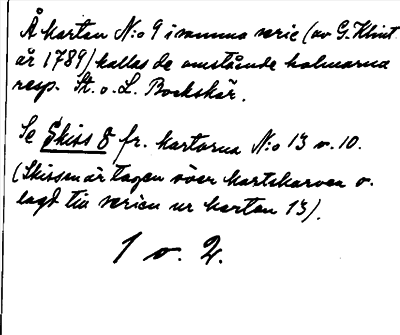 Å kartan N:o 9 i samma serie (av G. Klint
år 1789) kallas de omstående holmarna
resp. St. o. L. Bockskär.
Se Skiss 8 fr. kartorna N:o 13 o. 10.
(Skissen är tagen över kartskarven o.
lagd till serien ur kartan 13).
1 o. 2.